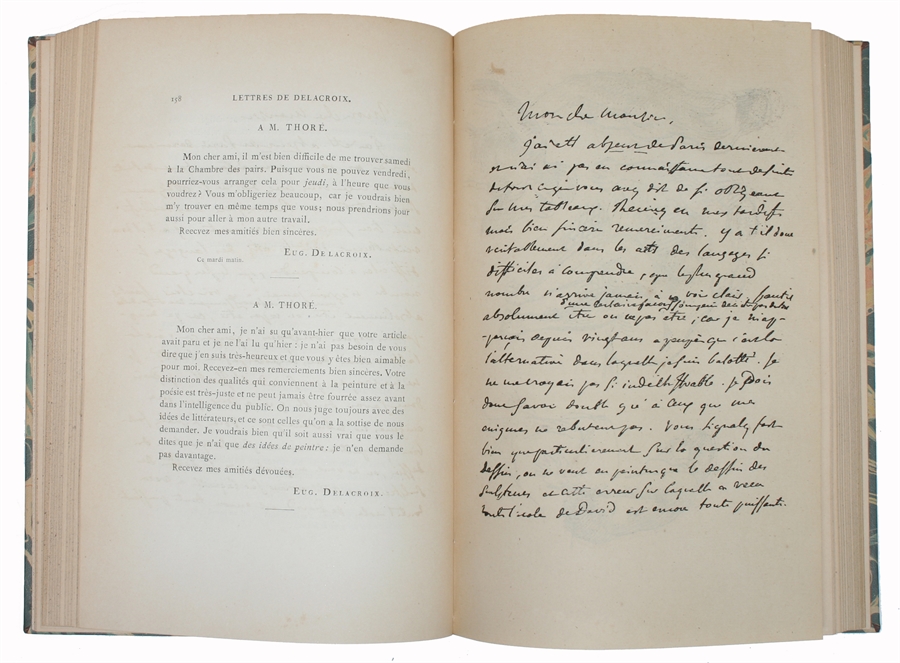 158 LETTRES DE DELACROIX.
A M. THORÉ.
Mon cher ami, il m'est bien difficile de me trouver samedi
à la Chambre des pairs. Puisque vous ne pouvez vendredi,
pourriez-vous arranger cela pour jeudi, à l'heure que vous
voudrez? Vous m'obligeriez beaucoup, car je voudrais bien
m'y trouver en même temps que vous; nous prendrions jour
aussi pour aller à mon autre travail.
Recevez mes amitiés bien sincères.
EUG. DELACROIX.
Ce mardi matin.
A M. THORÉ.
Mon cher ami, je n'ai su qu'avant-hier que votre article
avait paru et je ne l'ai lu qu'hier: je n'ai pas besoin de vous
dire que j'en suis très-heureux et que vous y êtes bien aimable
pour moi. Recevez-en mes remerciements bien sincères. Votre
distinction des qualités qui conviennent à la peinture et à la
poésie est très-juste et ne peut jamais être fourrée assez avant
dans l'intelligence du public. On nous juge toujours avec des
idées de littérateurs, et ce sont celles qu'on a la sottise de nous
demander. Je voudrais bien qu'il soit aussi vrai que vous le
dites que je n'ai que des idées de peintre: je n'en demande
pas davantage.
Recevez mes amitiés dévouées.
EUG. DELACROIX.
Mon cher Monsieur,
J'ai été absent de Paris dernièrement
et n'ai pas eu connaissance tout de suite
de vous avez dit de si obligeant
sur mes tableaux. Recevez en mes tardifs
mais bien sincères remerciments. Y a t'il donc
véritablement dans les arts des langages si
difficiles à comprendre, que le plus grand
nombre n'arrive jamais à y voir clair, faut il
d'une certaine façon
absolument être ou ne pas être; car je
depuis vingt ans
l'alternative dans laquelle je suis balotté. Je
ne me croyais pas si indéchiffrable. Je Dois
donc savoir double gré à ceux que mes
énigmes ne rebutent pas. Vous signalez fort
bien que particulièrement sur la question du
dessin, on ne veut en peinture que le dessin des
sculpteurs et cette erreur sur laquelle a vécu
toute l'école de David est encore toute puissante.